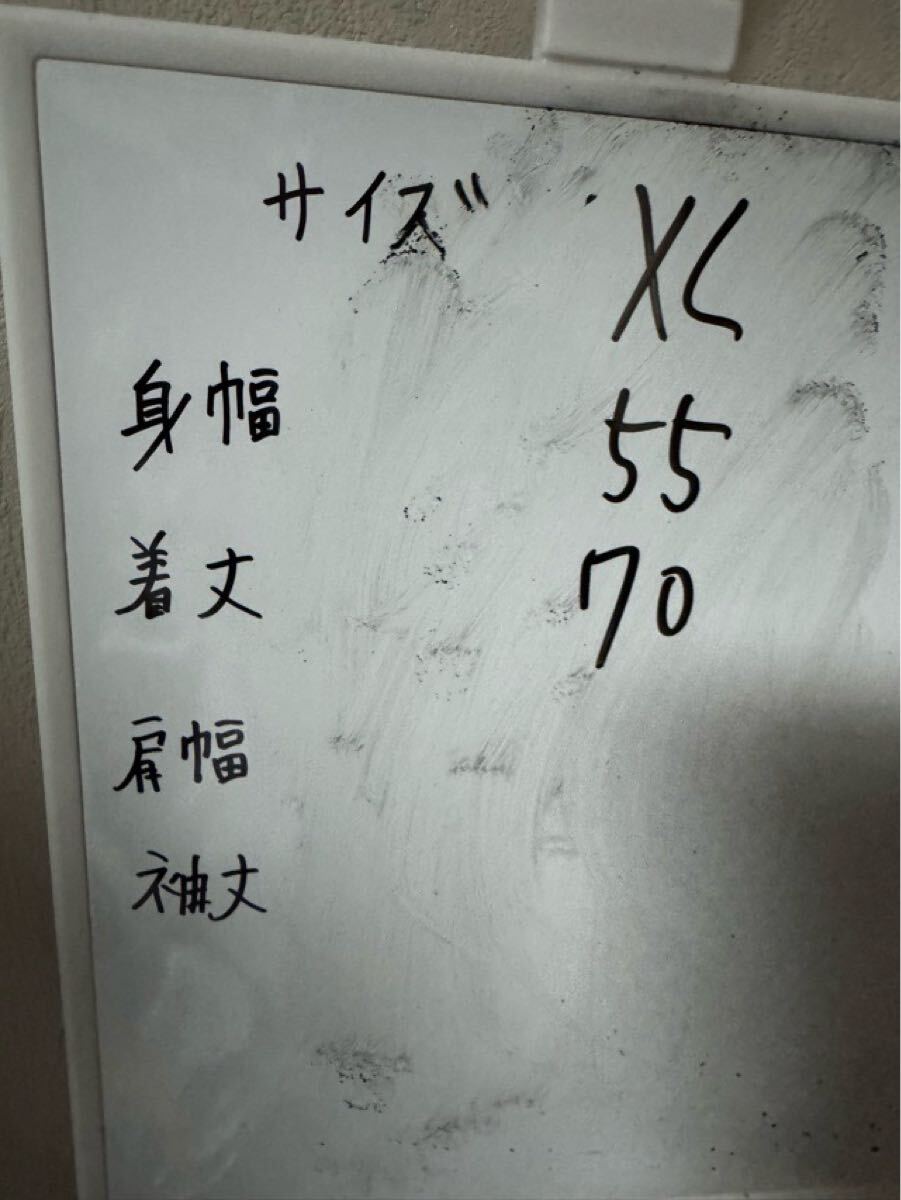 サイズ XL
身幅 55
着丈 70
肩幅
袖丈